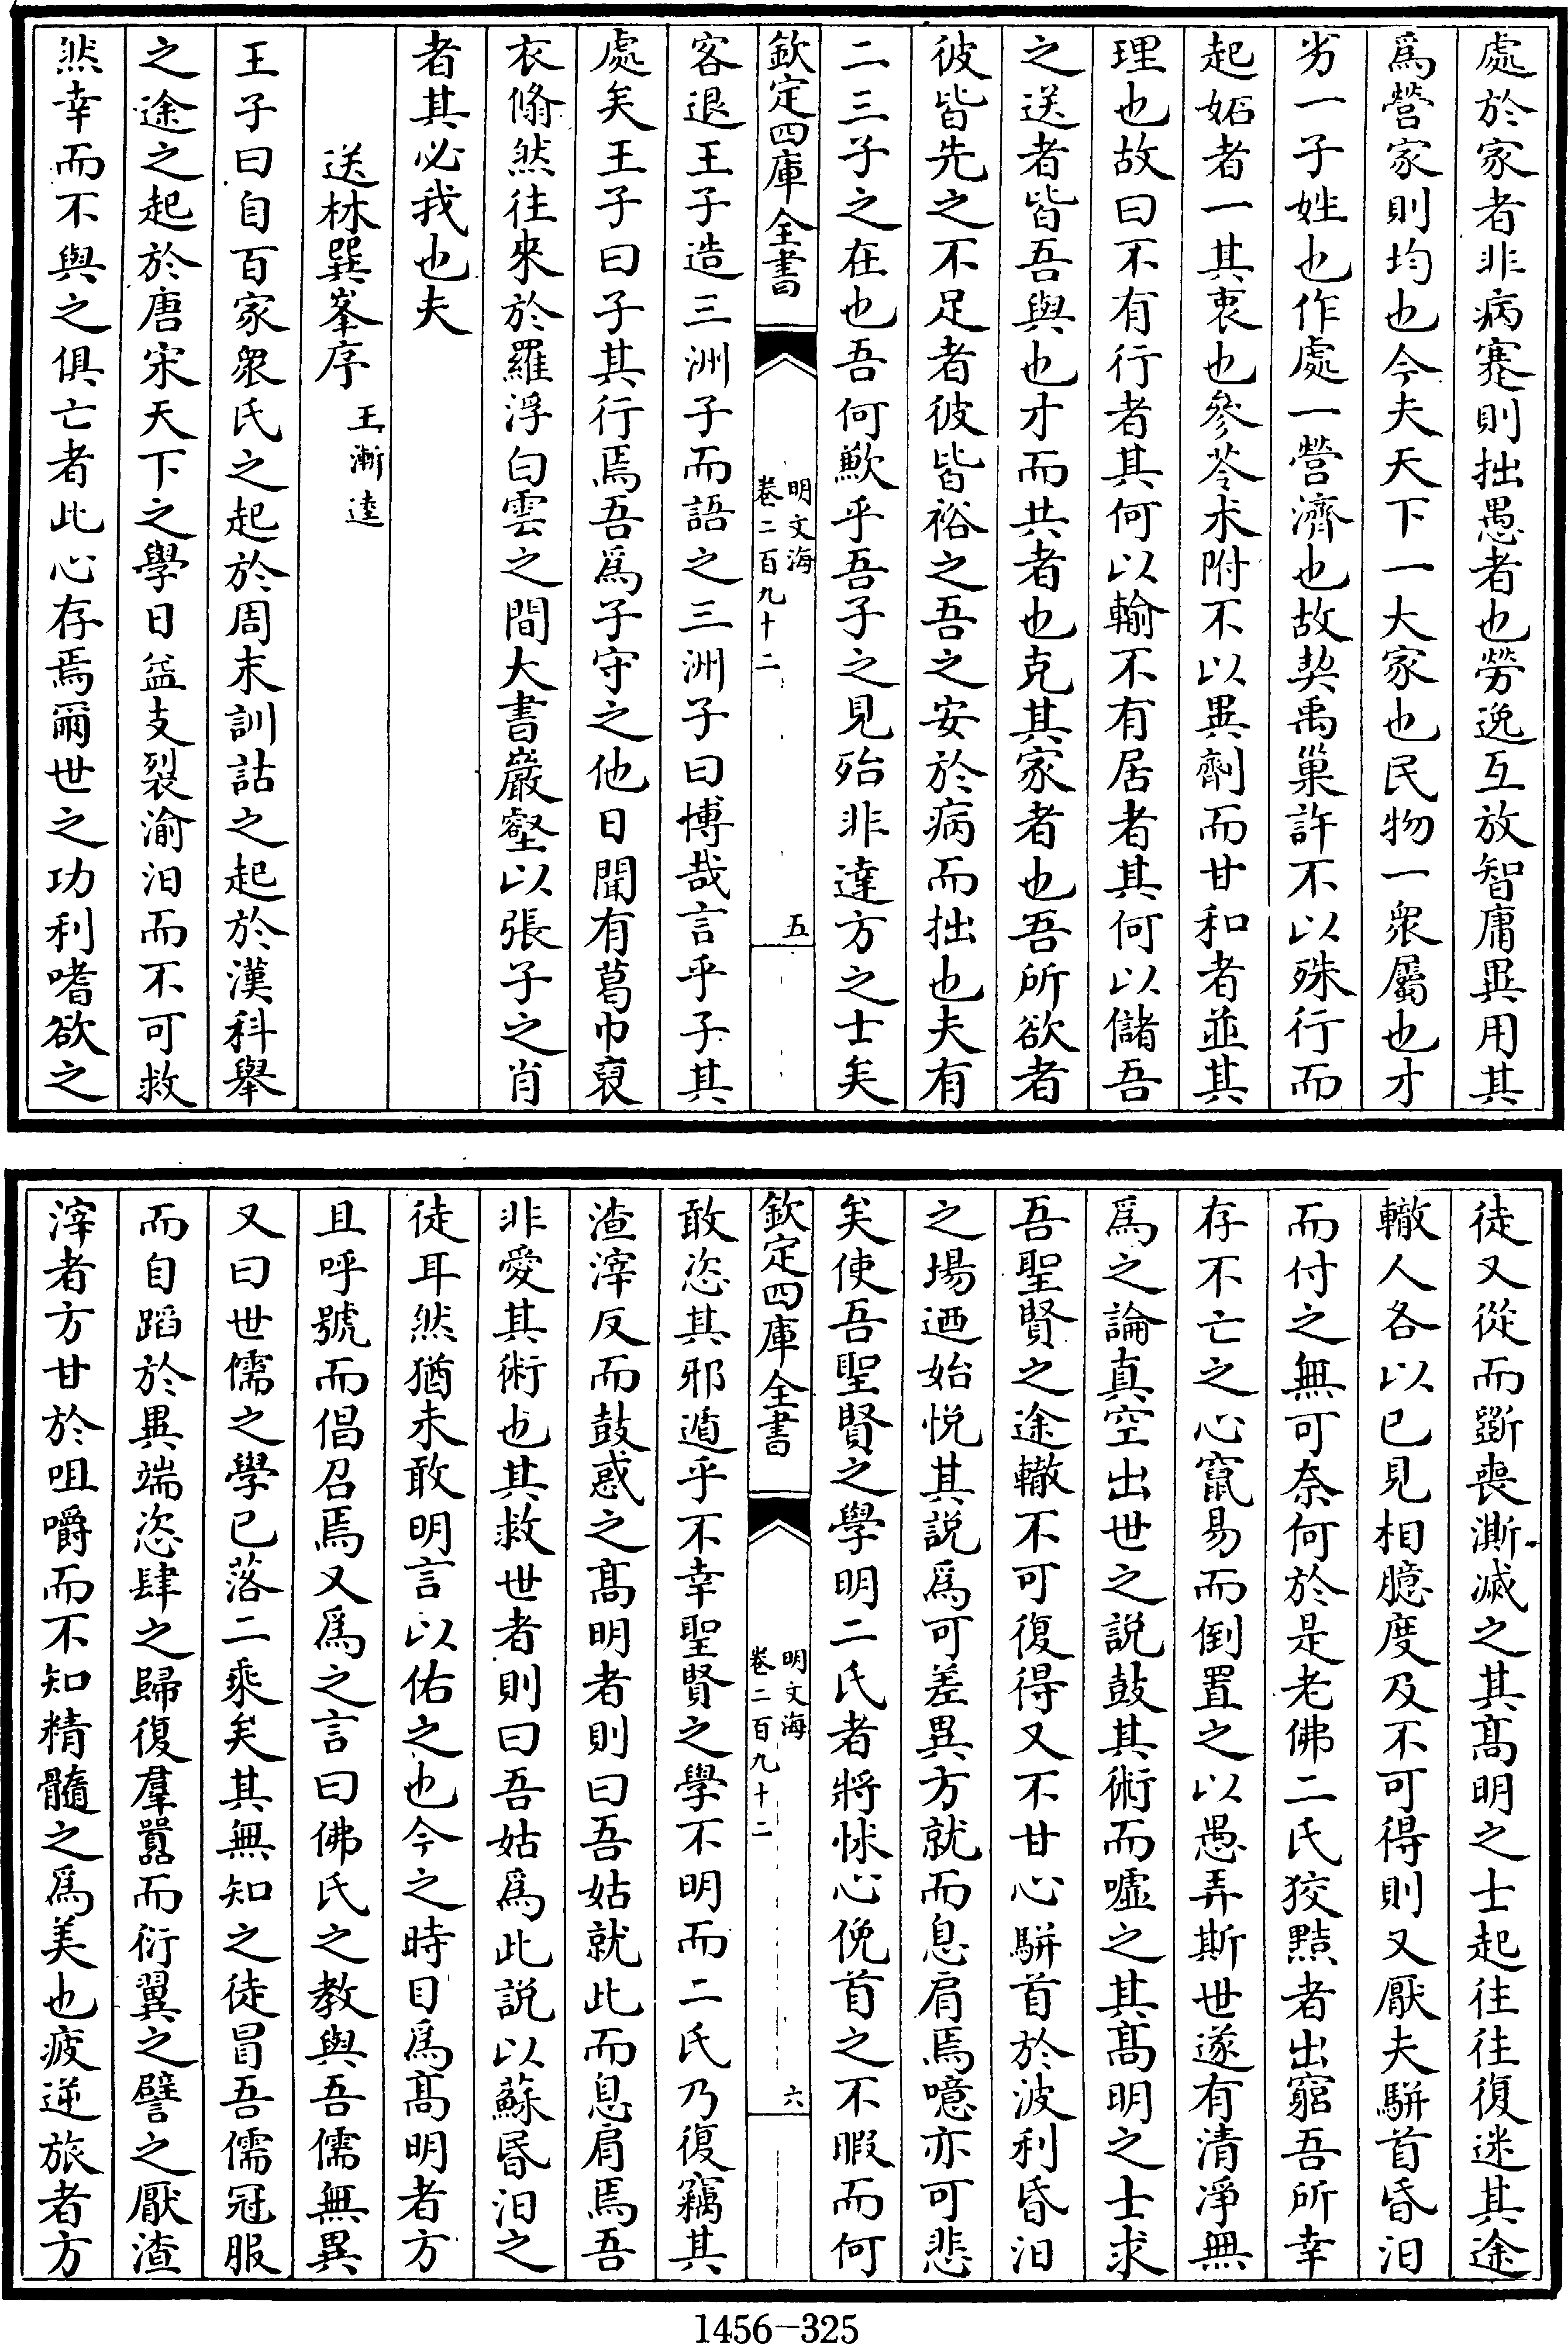 處於家者非病蹇則拙愚者也勞逸互放智庸異用其
爲營家則均也今夫天下一大家也民物一衆屬也才
劣一子姓也作處一營濟也故契禹巢許不以殊行而
起妬者一其衷也參苓朮附不以異劑而甘和者並其
理也故曰不有行者其何以輸不有居者其何以儲吾
之送者皆吾與也才而共者也克其家者也吾所欲者
彼皆先之不足者彼皆裕之吾之安於病而拙也夫有
二三子之在也吾何歉乎吾子之見殆非達方之士矣
欽定四庫全書
明文海
卷二百九十二
五
客退王子造三洲子而語之三洲子曰博哉言乎子其
處矣王子曰子其行焉吾爲子守之他日聞有葛巾裒
衣翛然往來於羅浮白雲之間大書巖壑以張子之肖
者其必我也夫
送林巽峯序 王漸逵
王子曰自百家衆氏之起於周末訓詁之起於漢科舉
之途之起於唐宋天下之學日益支裂淪汩而不可救
然幸而不與之俱亡者此心存焉爾世之功利嗜欲之
徒又從而斲喪澌滅之其髙明之士起往往復迷其途
轍人各以已見相臆度及不可得則又厭夫駢首昏汩
而付之無可奈何於是老佛二氏狡黠者出窮吾所幸
存不亡之心竄易而倒置之以愚弄斯世遂有清凈無
爲之論真空出世之説鼓其術而噓之其髙明之士求
吾聖賢之途轍不可復得又不甘心駢首於波利昏汩
之場迺始悦其説爲可差異方就而息肩焉噫亦可悲
矣使吾聖賢之學明二氏者將怵心俛首之不暇而何
欽定四庫全書
明文海
卷二百九十二
六
敢恣其邪遁乎不幸聖賢之學不明而二氏乃復竊其
渣滓反而鼓惑之髙明者則曰吾姑就此而息肩焉吾
非愛其術也其救世者則曰吾姑爲此説以蘇昬汩之
徒耳然猶未敢明言以佑之也今之時目爲髙明者方
且呼號而倡召焉又爲之言曰佛氏之教與吾儒無異
又曰世儒之學已落二乘矣其無知之徒冒吾儒冠服
而自蹈於異端恣肆之歸復羣囂而衍翼之譬之厭渣
滓者方甘於咀嚼而不知精髓之爲美也疲逆旅者方
1456-325